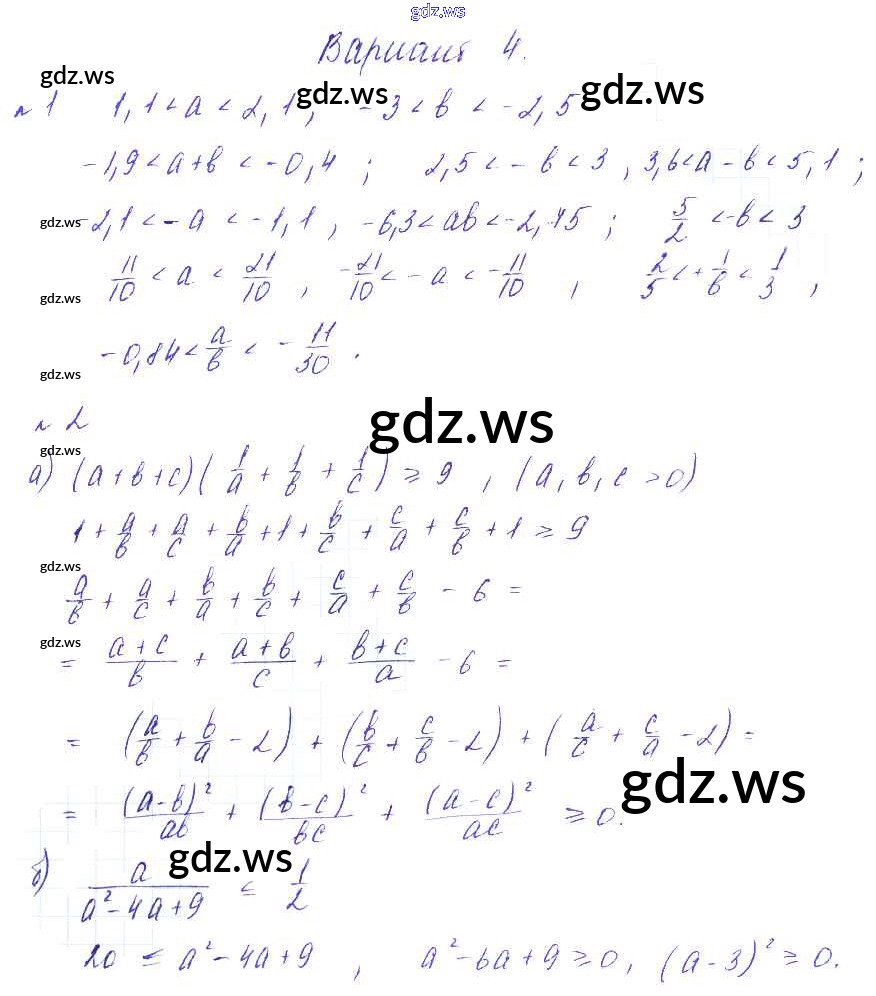 gdz.ws
Вариант 4.
gdz.ws
№ 1   1,1 < a < 2,1 ;   -3 < b < -2,5
gdz.ws
gdz.ws
-1,9 < a+b < -0,4 ;   2,5 < -b < 3 , 3,6 < a - b < 5,1 ;
gdz.ws
-2,1 < -a < -1,1 , -6,3 < ab < -2,75 ;   5/2 < -b < 3
11/10 < a < 21/10 ,   -21/10 < -a < -11/10 ,   2/5 < + 1/b < 1/3 ,
gdz.ws
-0,84 < a/b < - 11/30 .
gdz.ws
№ 2
gdz.ws
gdz.ws
а) (a+b+c)( 1/a + 1/b + 1/c ) ≥ 9 , (a, b, c > 0)
1 + a/b + a/c + b/a + 1 + b/c + c/a + c/b + 1 ≥ 9
gdz.ws
a/b + a/c + b/a + b/c + c/a + c/b - 6 =
gdz.ws
= (a+c)/b + (a+b)/c + (b+c)/a - 6 =
= (a/b + b/a - 2) + (b/c + c/b - 2) + (a/c + c/a - 2) =
gdz.ws
= (a-b)²/ab + (b-c)²/bc + (a-c)²/ac ≥ 0.
gdz.ws
б) a/(a²-4a+9) ≤ 1/2
20 ≤ a²-4a+9 ,   a²-6a+9 ≥ 0, (a-3)² ≥ 0.